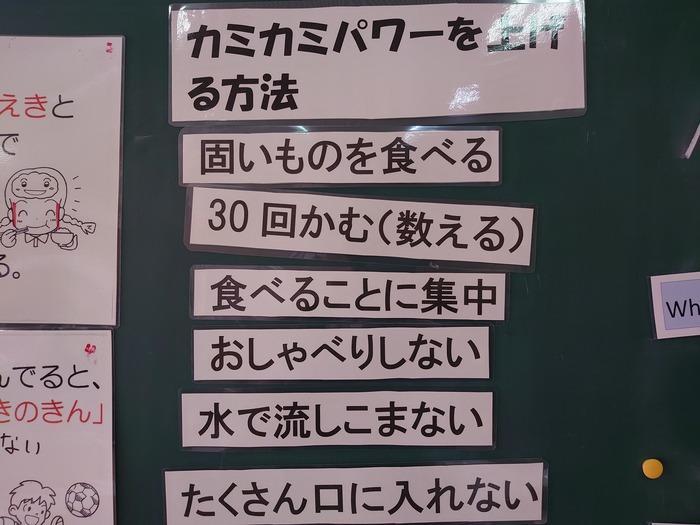 カミカミパワーを上げ
る方法
固いものを食べる
30回かむ(数える)
食べることに集中
おしゃべりしない
水で流しこまない
たくさん口に入れない
えきと
で
る。
んでると、
きのきん」
ない
Wh